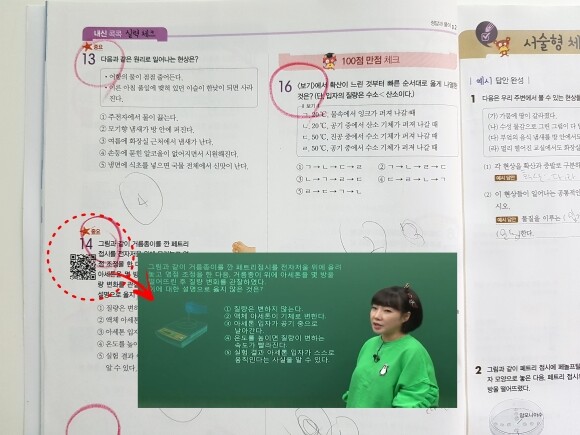 내신 콕콕 실력 체크
중요
13 다음과 같은 원리로 일어나는 현상은?
• 어항의 물이 점점 줄어든다.
• 이른 아침 풀잎에 맺혀 있던 이슬이 한낮이 되면 사라
진다.
① 주전자에서 물이 끓는다.
② 모기향 냄새가 방 안에 퍼진다.
③ 여름에 화장실 근처에서 냄새가 난다.
④ 손등에 묻힌 알코올이 없어지면서 시원해진다.
⑤ 냉면에 식초를 넣으면 국물 전체에서 신맛이 난다.
4
중요
14 그림과 같이 거름종이를 깐 페트리
접시를 전자저울
영점 조정을 한 다
아세톤을 몇 방
량 변화를 관찰
설명으로 옳지
① 질량은 변하지
② 액체 아세톤이
③ 아세톤 입자
④ 온도를 높이
⑤ 실험 결과
알 수 있다.
100점 만점 체크
16 〈보기〉에서 확산이 느린 것부터 빠른 순서대로 옳게 나열한
것은? (단, 입자의 질량은 수소<산소이다.)
보기
ㄱ. 20℃, 물속에서 잉크가 퍼져 나갈 때
ㄴ. 20℃, 공기 중에서 산소 기체가 퍼져 나갈 때
ㄷ. 20℃, 진공 중에서 수소 기체가 퍼져 나갈 때
ㄹ. 50℃, 공기 중에서 수소 기체가 퍼져 나갈 때
① ㄱ→ㄴ→ㄷ→ㄹ
③ ㄴ→ㄱ→ㄹ→ㄷ
⑤ ㄹ→ㄷ→ㄴ→ㄱ
그림과 같이 거름종이를 깐 페트리접시를 전자저울 위에 올려
놓고 영점 조정을 한 다음, 거름종이 위에 아세톤을 몇 방울
떨어뜨린 후 질량 변화를 관찰하였다.
이에 대한 설명으로 옳지 않은 것은?
① 질량은 변하지 않는다.
② 액체 아세톤이 기체로 변한다.
③ 아세톤 입자가 공기 중으로
날아간다.
④ 온도를 높이면 질량이 변하는
속도가 빨라진다.
⑤ 실험 결과 아세톤 입자가 스스로
움직인다는 사실을 알 수 있다.
서술형 체
예시 답안 완성
1 다음은 우리 주변에서 볼 수 있는 현상들
(가) 가뭄에 땅이 갈라졌다.
(나) 수성 물감으로 그린 그림이 다
(다) 부엌의 음식 냄새를 방 안에서도
(라) 멀리 떨어진 교실에서도 화장실
(1) 각 현상을 확산과 증발로 구분하
예시 답안
(2) 이 현상들이 일어나는 공통적인
시오.
예시 답안 물질을 이루는
2 그림과 같이 페트리 접시에 페놀프탈
자 모양으로 놓은 다음, 페트리 접시
방울 떨어뜨렸다.
암모니아수